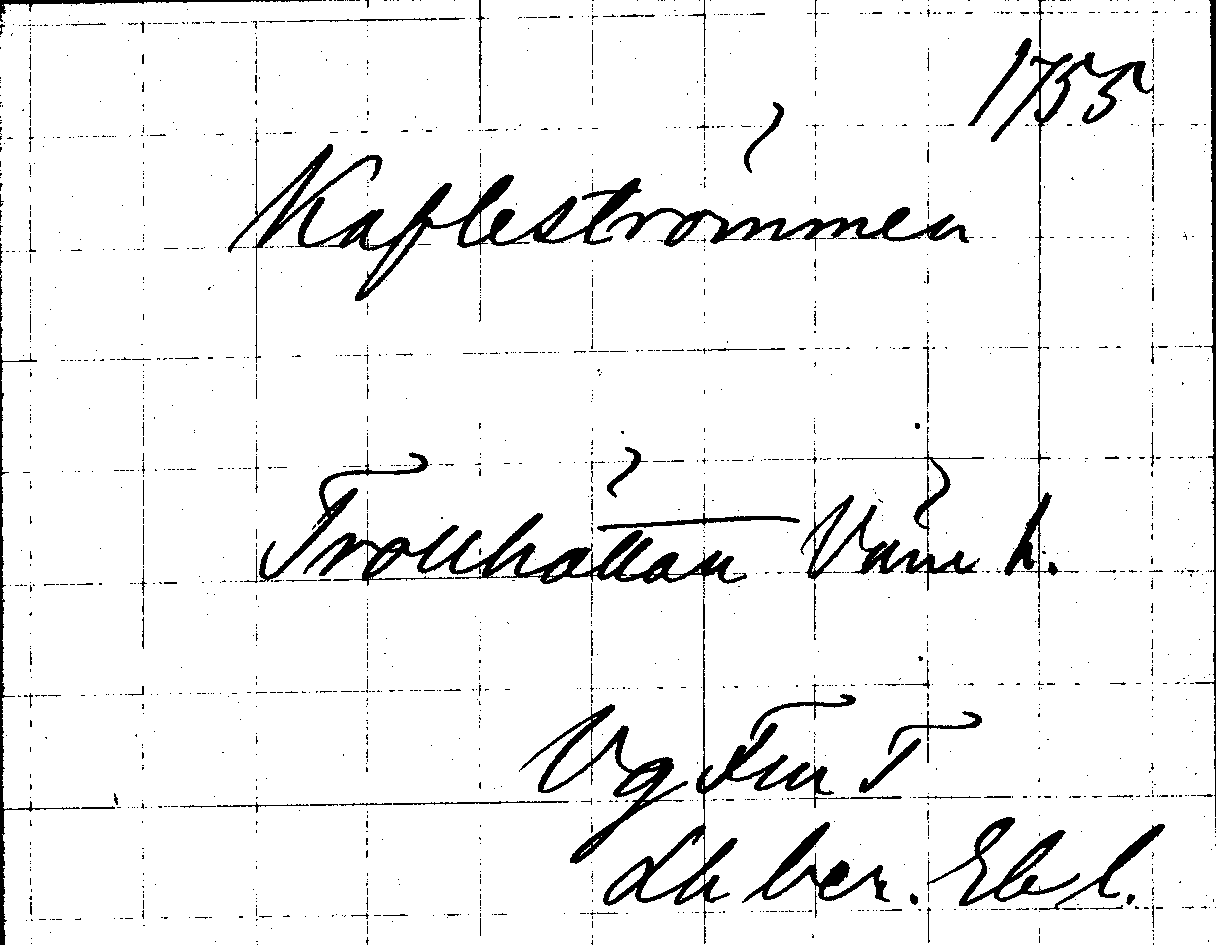 1755
Kafleströmmen
Trollhättan Väne h.
Vg Fln T
Lh ber. Eb l.